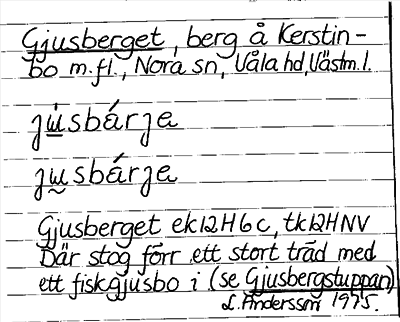 Gjusberget, berg å Kerstin-
bo m.fl., Nora sn, Våla hd, Västm. l.
jú̲sbárja
jw̰sbárja
Gjusberget ek12H6c, tk12HNV
Där stog förr ett stort träd med
ett fiskgjusbo i (se Gjusbergstuppan)
L. Andersson 1975.